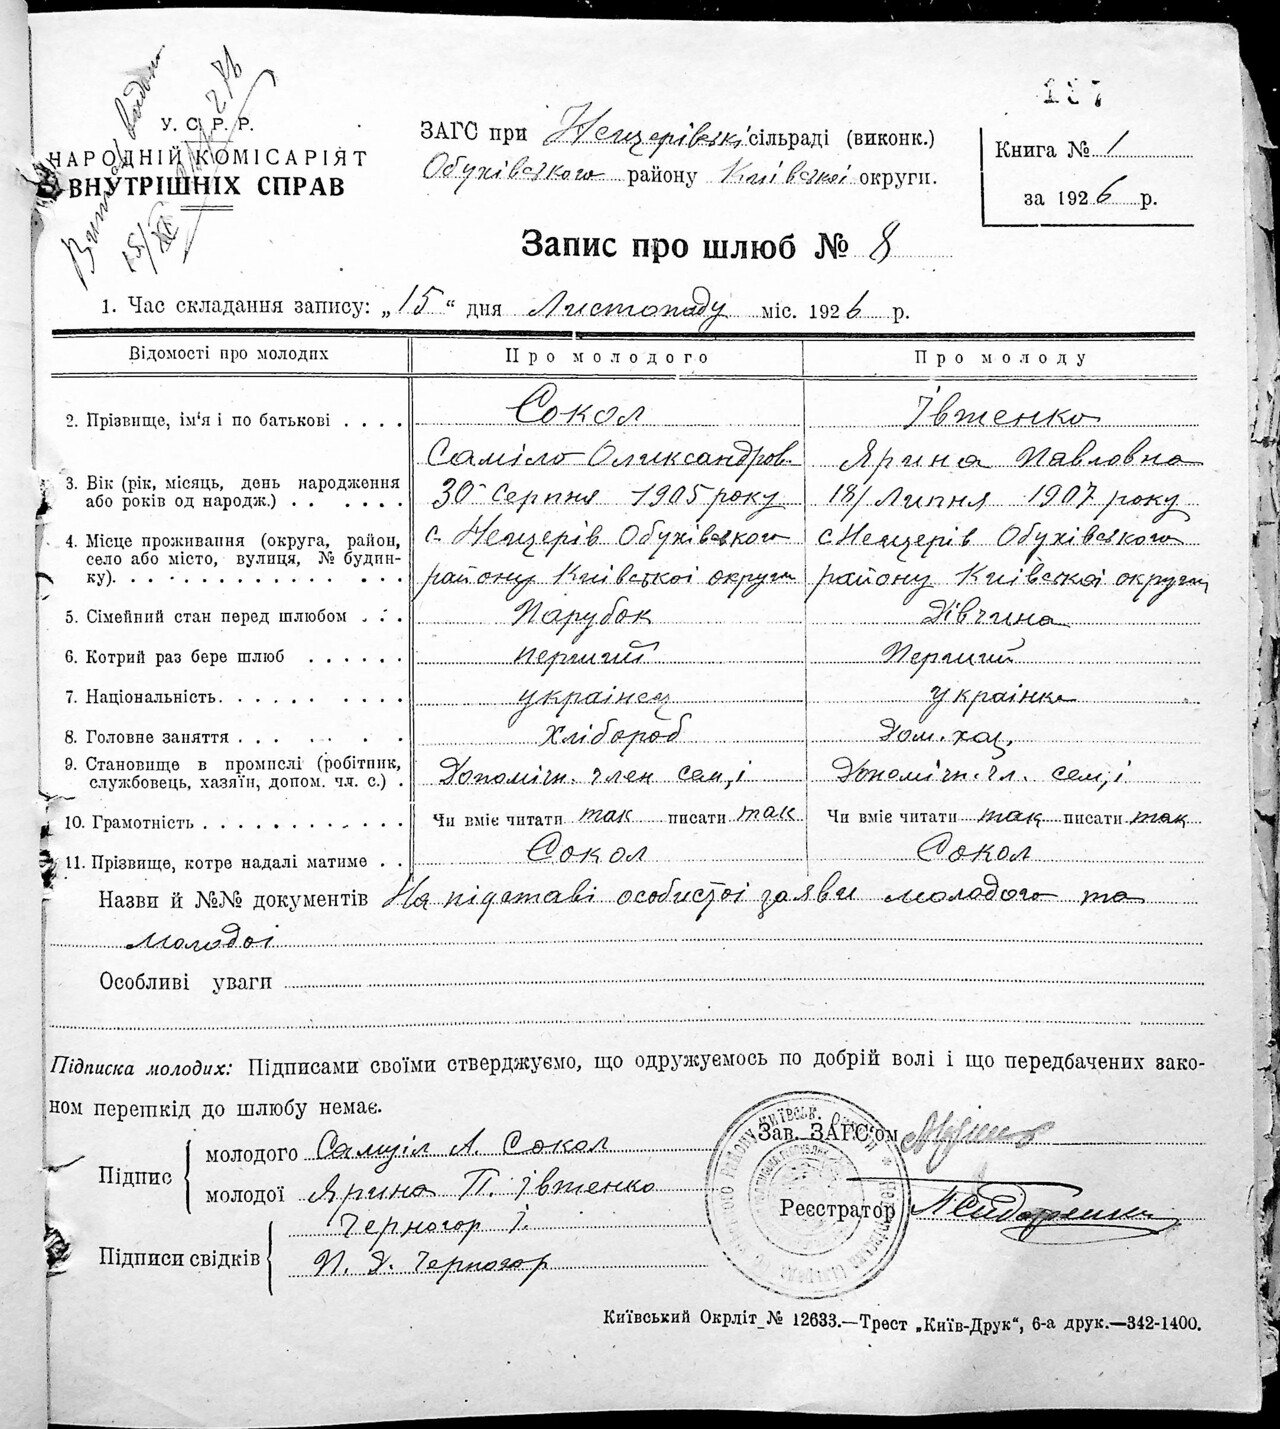 137
Витяг видано
15/XII
У. С. Р. Р.
НАРОДНІЙ КОМІСАРІЯТ
ВНУТРІШНІХ СПРАВ
ЗАГС при Нещерівські сільраді (виконк.)
Обухівського району Київської округи.
Книга № 1
за 1926 р.
Запис про шлюб № 8
1. Час складання запису: „15“ дня Листопаду міс. 1926 р.
Відомості про молодих Про молодого Про молоду
2. Прізвище, ім'я і по батькові . . . . Сокол Івженко
Саміло Олександров. Ярина Павловна
3. Вік (рік, місяць, день народження або років од народж.) . . . . . . 30 Серпня 1905 року 18/ Липня 1907 року
4. Місце проживання (округа, район, с. Нещерів Обухівського с Нещерів Обухівського
село або місто, вулиця, № будин-
ку). . . . . . . . . . . . . . . району Київскоі округи району Київскоі округи
5. Сімейний стан перед шлюбом . . . Парубок Дівчина
6. Котрий раз бере шлюб . . . . . . перший Перший
7. Національність. . . . . . . . . . українец украінка
8. Головне заняття . . . . . . . . Хлібороб Дом. хоз.
9. Становище в промислі (робітник,
службовець, хазяїн, допом. чл. с.) . Допомічн. член сем,і Допомічн. чл. сем,і
10. Грамотність . . . . . . . . . . . . Чи вміє читати так писати так Чи вміє читати так писати так
11. Прізвище, котре надалі матиме . . Сокол Сокол
Назви й №№ документів На підставі особистоі заяви молодого та
молодоі
Особливі уваги
Підписка молодих: Підписами своїми стверджуємо, що одружуємось по добрій волі і що передбачених зако-
ном перешкід до шлюбу немає.
Підпис
молодого Самуіл А. Сокол
молодої Ярина П. Івженко
Підписи свідків
Черногор І.
П. Д. Черногор
Зав. ЗАГС'ом
Реєстратор
Київський Окрліт № 12633.—Трест „Київ-Друк“, 6-а друк.—342-1400.